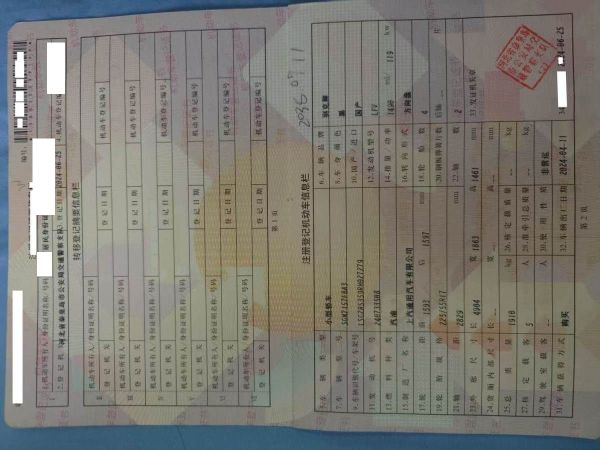 编号:
1.机动车所有人/身份证明名称/号码 居民身份证
2.登记机关 河北省秦皇岛市公安局交通警察支队 3.登记日期 2024-06-25 4.机动车登记编号
转移登记摘要信息栏
机动车所有人/身份证明名称/号码
登记机关 登记日期 机动车登记编号
机动车所有人/身份证明名称/号码
登记机关 登记日期 机动车登记编号
机动车所有人/身份证明名称/号码
登记机关 登记日期 机动车登记编号
机动车所有人/身份证明名称/号码
登记机关 登记日期 机动车登记编号
机动车所有人/身份证明名称/号码
登记机关 登记日期 机动车登记编号
机动车所有人/身份证明名称/号码
登记机关 登记日期 机动车登记编号
第1页
注册登记机动车信息栏
5.车辆类型 小型轿车 6.车辆品牌 别克牌
7.车辆型号 8.车身颜色 黑
9.车辆识别代号/车架号 10.国产/进口 国产
11.发动机号 12.发动机型号 LFV
13.燃料种类 汽油 14.排量/功率 1490 ml/ 119 kw
15.制造厂名称 上汽通用汽车有限公司 16.转向形式 方向盘
17.轮距 前 1593 后 1597 mm 18.轮胎数 4
19.轮胎规格 225/55R17 20.钢板弹簧片数 后轴 片
21.轴距 2829 mm 22.轴数 2
23.外廓尺寸 长 4904 宽 1863 高 1461 mm 33.发证机关章
24.货厢内部尺寸 长 宽 高 mm
25.总质量 1910 kg 26.核定载质量 kg
27.核定载客 5 人 28.准牵引总质量 kg
29.驾驶室载客 人 30.使用性质 非营运
31.车辆获得方式 购买 32.车辆出厂日期 2024-04-11 34. 2024-06-25
第2页